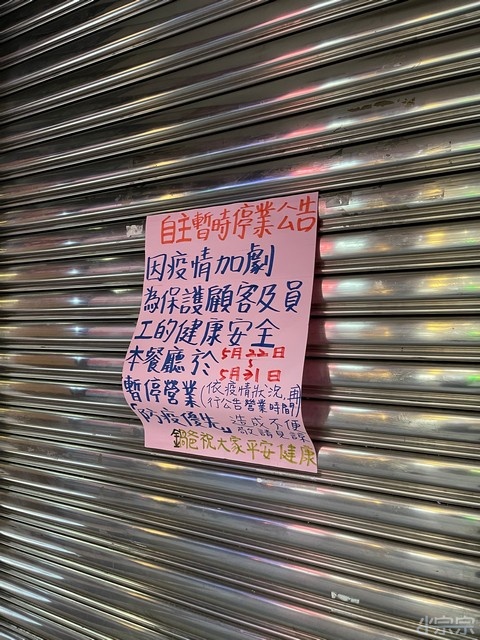 自主暫時停業公告
因疫情加劇
為保護顧客及員
工的健康安全
本餐廳於 5月22日
~
5月31日
暫停營業(依疫情狀況,再
行公告營業時間)
「防疫優先」造成不便
敬請見諒
鍋爸祝大家平安健康
小宗宗